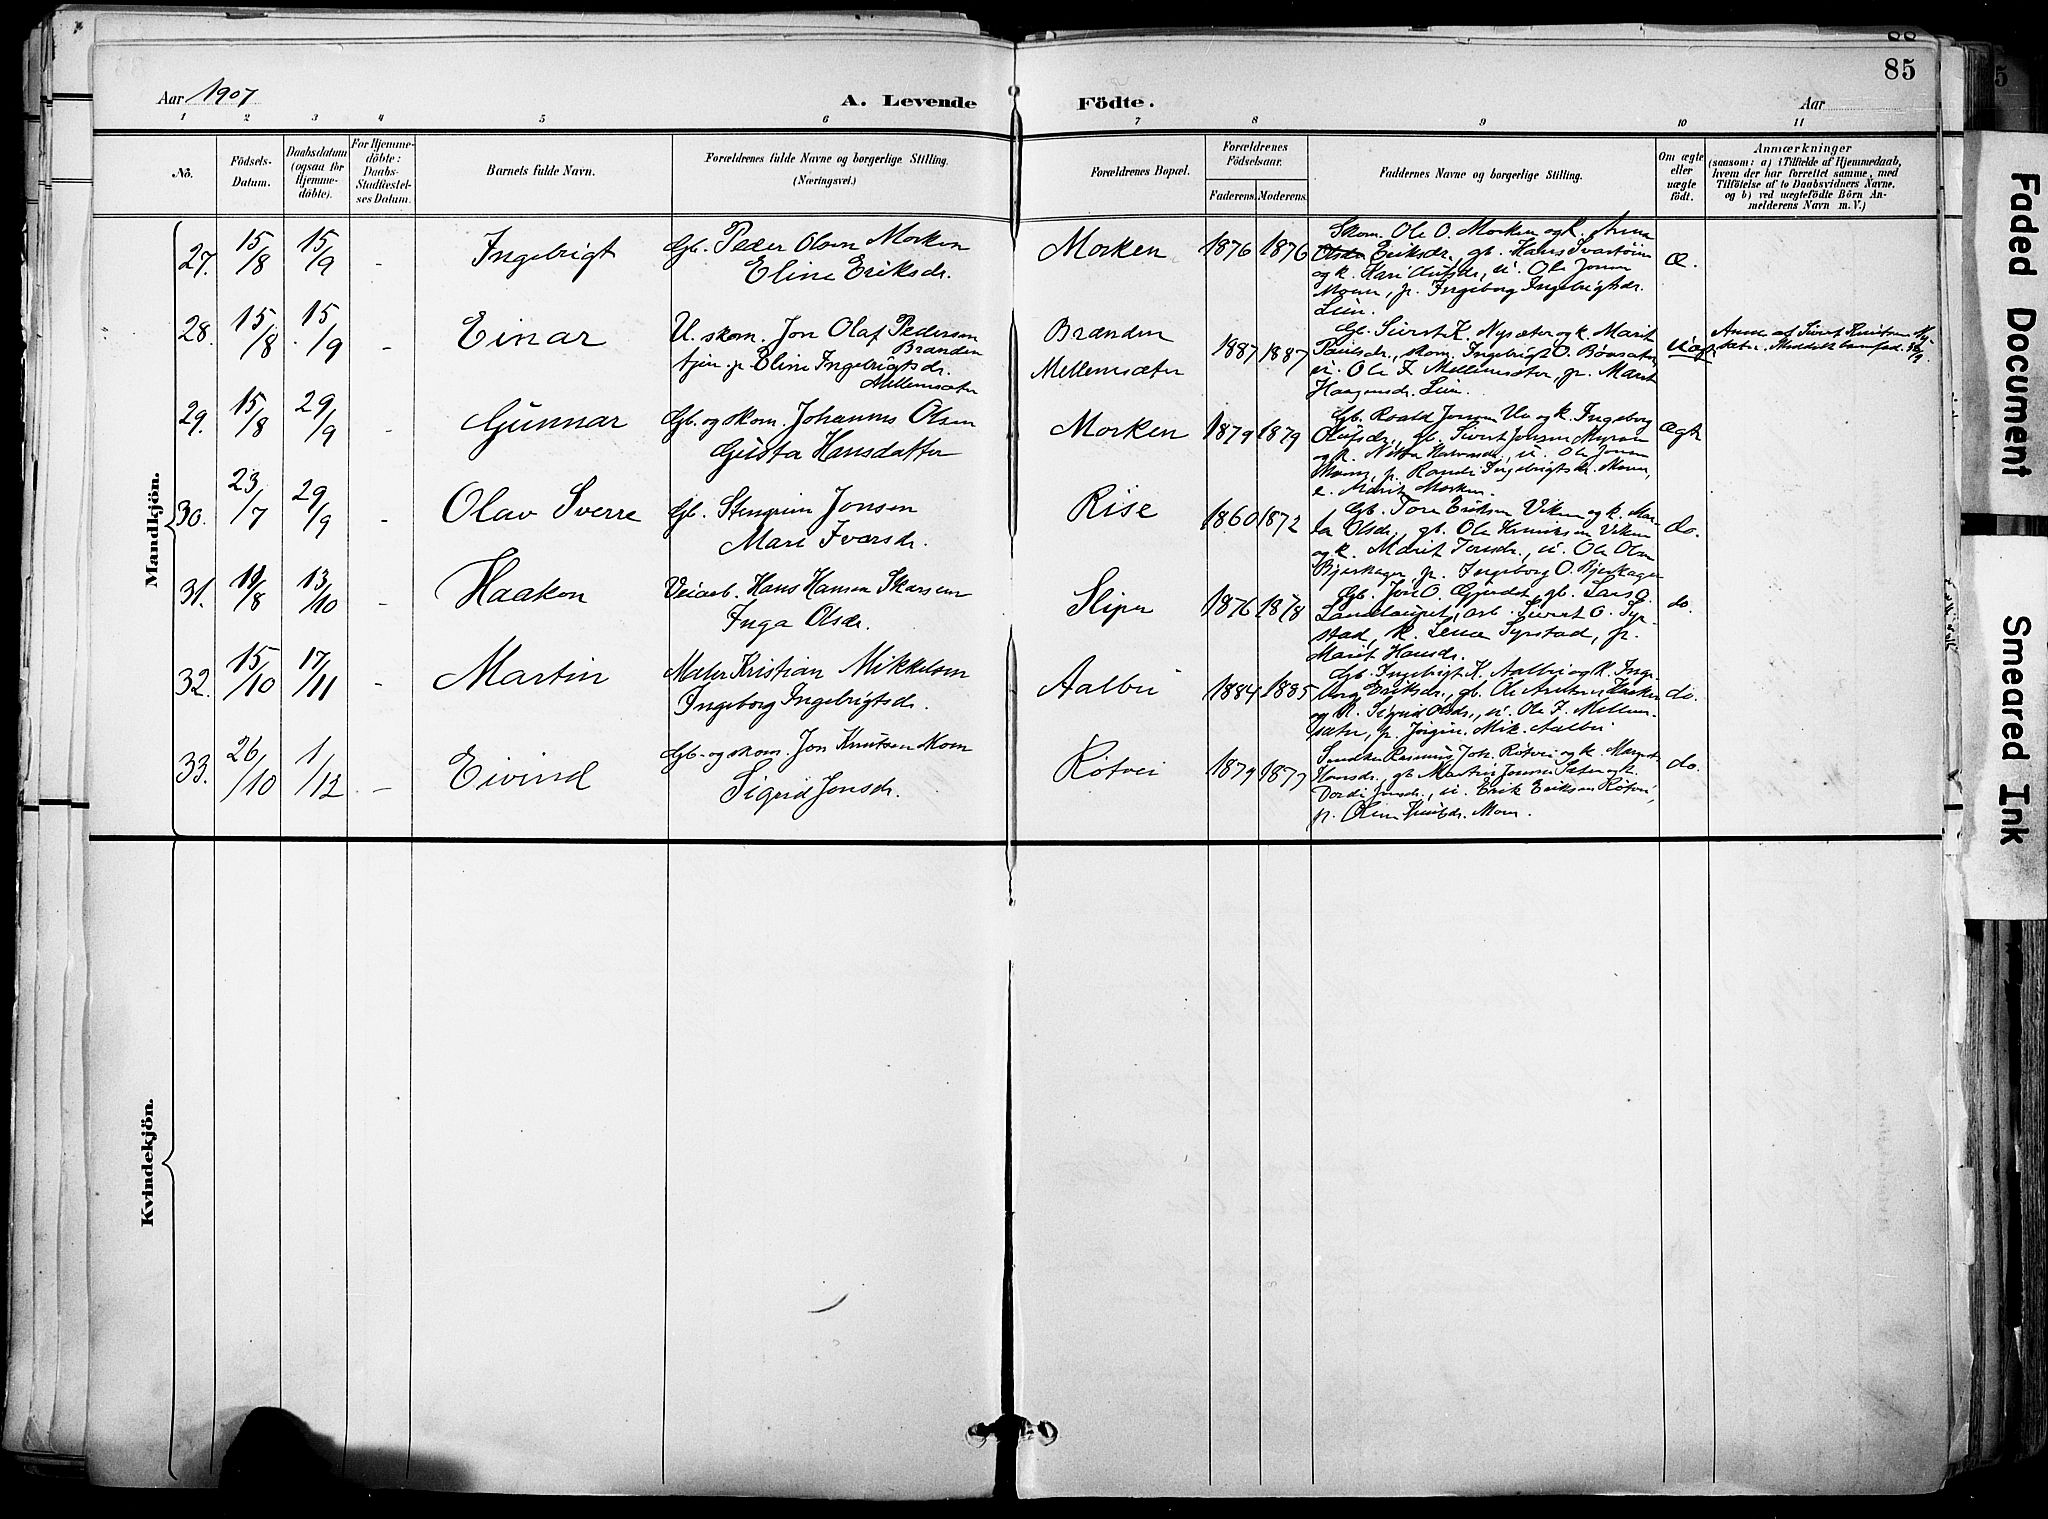 88
85
Aar 1907
A. Levende Födte.
Aar
1 2 3 4 5 6 7 8 9 10 11
No.
Födsels-Datum.
Daabsdatum (ogsaa for Hjemmedöbte).
For Hjemmedöbte: Daabs-Stadfæstelses Datum.
Barnets fulde Navn.
Forældrenes fulde Navne og borgerlige Stilling. (Næringsvei.)
Forældrenes Bopæl.
Forældrenes Födselsaar.
Faderens. Moderens.
Faddernes Navne og borgerlige Stilling.
Om ægte eller uægte födt.
Anmærkninger
(saasom: a) i Tilfælde af Hjemmedaab,
hvem der har forrettet samme, med
Tilföielse af to Daabsvidners Navne,
og b) ved uægtefödte Börn An-
melderens Navn m. V.)
Mandkjön.
27. 15/8 15/9 - Ingebrigt Gb. Peder Olsen Morken
Eline Eriksdr.
Morken 1876 1876
Skom. Ole O. Morken og k. Anna
Eriksdr., gb. Hans Svartøien
og k. Kari Olufsdr., u. Ole Jonsen
Moen, p. Ingeborg Ingebrigtsdr.
Lien.
æ.
28. 15/8 15/9 - Einar U. skom. Jon Olaf Pedersen
Brænden
tjen. p. Eline Ingebrigtsdr.
Mellemsæter
Brænden
Mellemsæter
1887 1887
Gb. Sivert K. Nysæter og k. Marit
Paulsdr., skom. Ingebrigt O. Bønsæter
u. Ole I. Mellemsæter, p. Marit
Haagensdr. Lien.
uæg.
Anm. af Sivert Knutsen Ny-
sæter.
29. 15/8 29/9 - Gunnar Gb. og skom. Johannes Olsen
Gusta Hansdatter
Morken 1879 1879
Gb. Roald Jonsen Uv og k. Ingeborg
Olufsdr., gb. Sivert Jonsen Myren
og k. u. Ole Jonsen
Moen, p. Randi Ingebrigtsdr. Moen,
e. Marit Morken.
ægte
30. 23/7 29/9 - Olav Sverre Gb. Stengrim Jonsen
Mari Iversdr.
Rise 1860 1872
Gb. Tore Eriksen Viken og k. Mar-
ta Olsdr., gb. Ole Henriksen Viken
og k. Marit Toresdr., u. Ole Olsen
Bjerkager, p. Ingeborg O. Bjerkager
do.
31. 19/8 13/10 - Haakon Veiarb. Hans Hansen Skarseun
Inga Olsdr.
Sliper 1876 1878
Gb. Jon O. Gjerdet, gb. Lars O.
arb. Sivert O. Syr-
stad, k. Lena Syrstad, p.
Marit Hansdr.
do.
32. 15/10 17/11 - Martin Møller Kristian Mikkelsen
Ingeborg Ingebrigtsdr.
Aalbu 1884 1885
Gb. Ingebrigt K. Aalbu og k. Inge-
borg Eriksdr., gb. Ole
og k. Sigrid Olsdr., u. Ole I. Mellem-
sæter, p. Jørgine Mik. Aalbu
do.
33. 26/10 1/12 - Eivind Gb. og skom. Jon Knutsen Moen
Sigrid Jonsdr.
Røtvei 1879 1877
Snedker Rasmus Joh. Røtvei og k. Margit
Hansdr., gb. Martin Jonsen Sæter og k.
Dordi Jonsdr., u. Erik Eriksen Røtvei,
p. Oline Knutsdr. Moen.
do.
Kvindekjön.
Faded Document
Smeared Ink